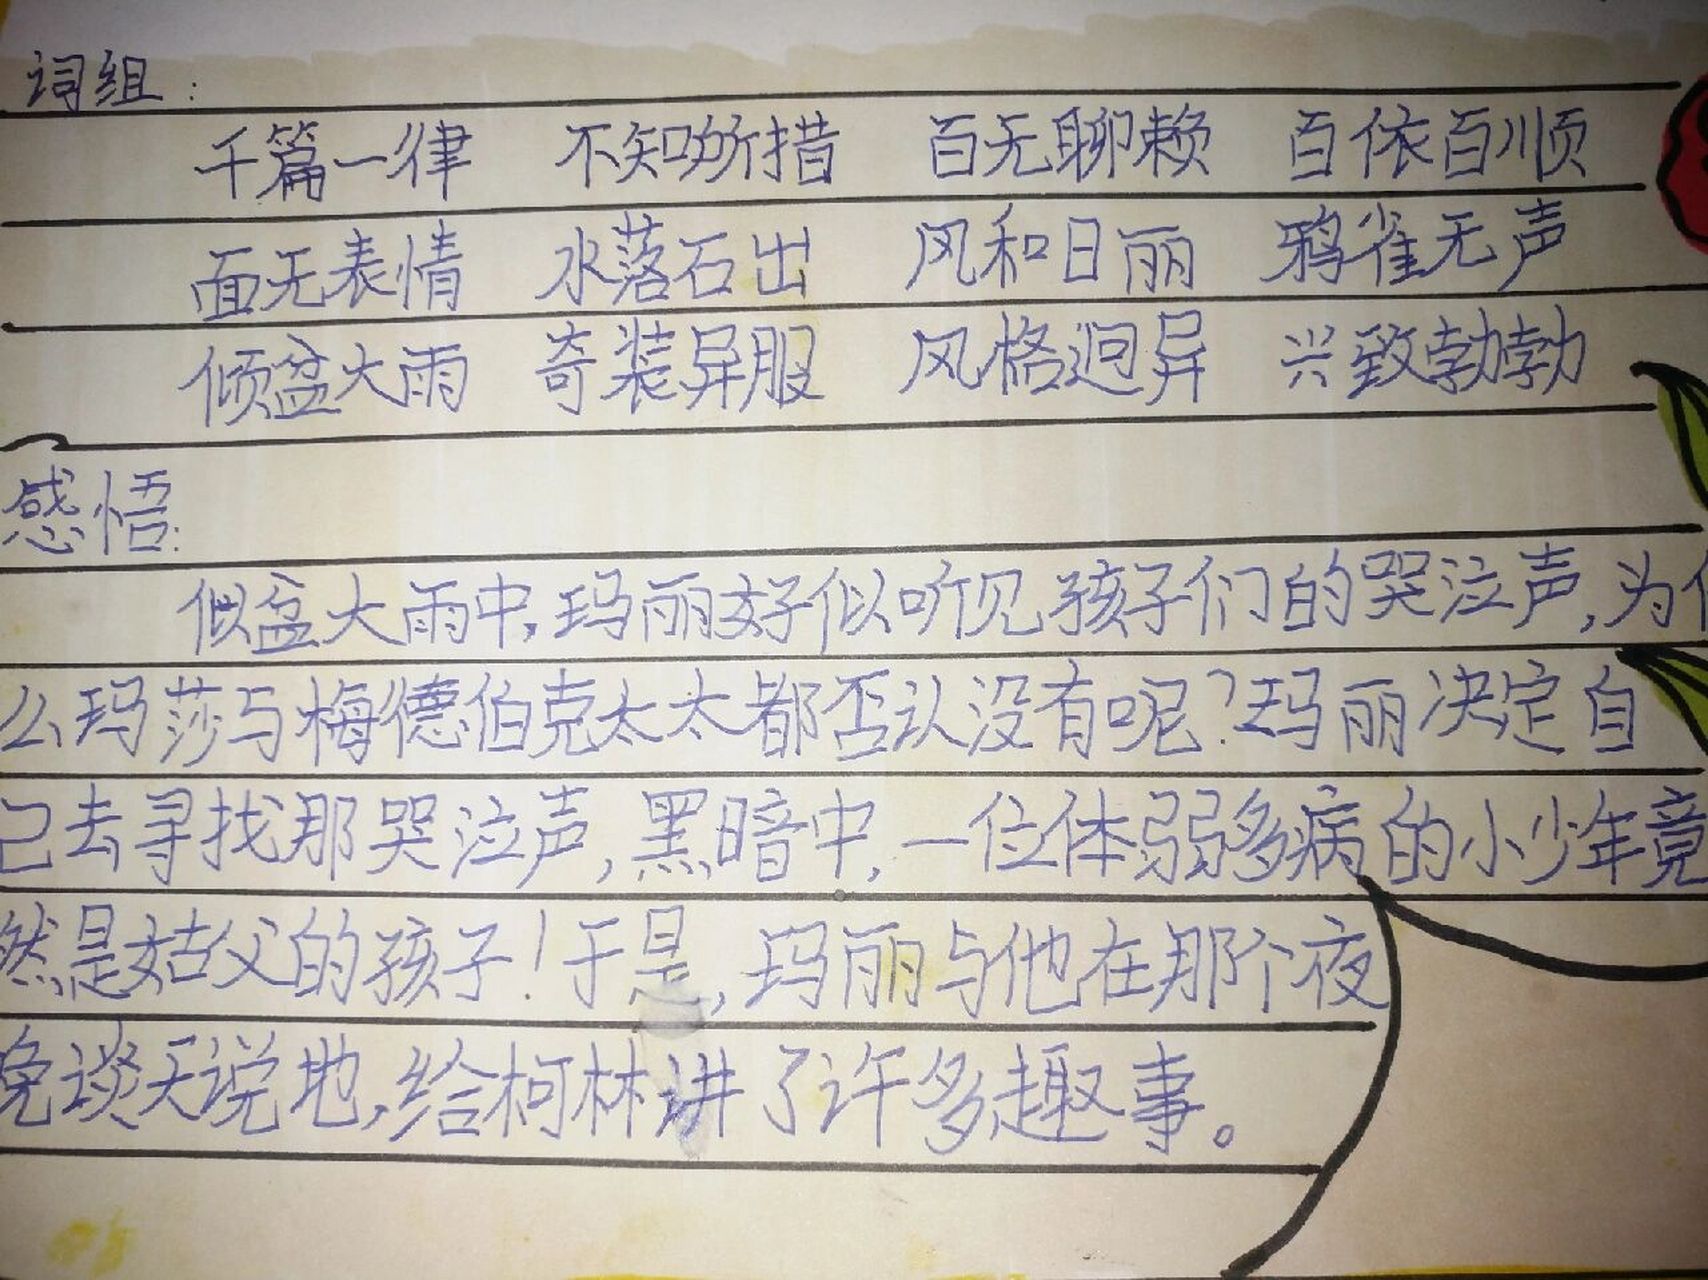 词组：
千篇一律 不知所措 百无聊赖 百依百顺
面无表情 水落石出 风和日丽 鸦雀无声
倾盆大雨 奇装异服 风格迥异 兴致勃勃
感悟：
倾盆大雨中，玛丽好似听见孩子们的哭泣声，为什
么玛莎与梅德伯克太太都否认没有呢？玛丽决定自
己去寻找那哭泣声，黑暗中，一位体弱多病的小少年竟
然是姑父的孩子！于是，玛丽与他在那个夜
晚谈天说地，给柯林讲了许多趣事。